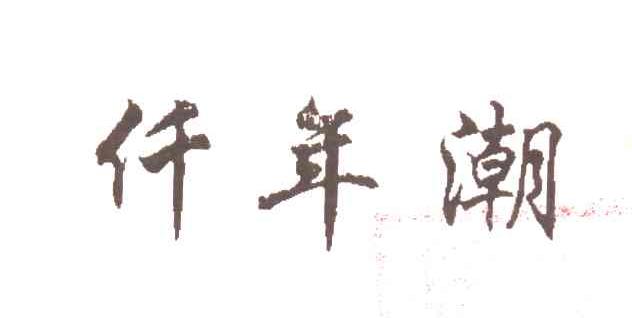 仟年潮